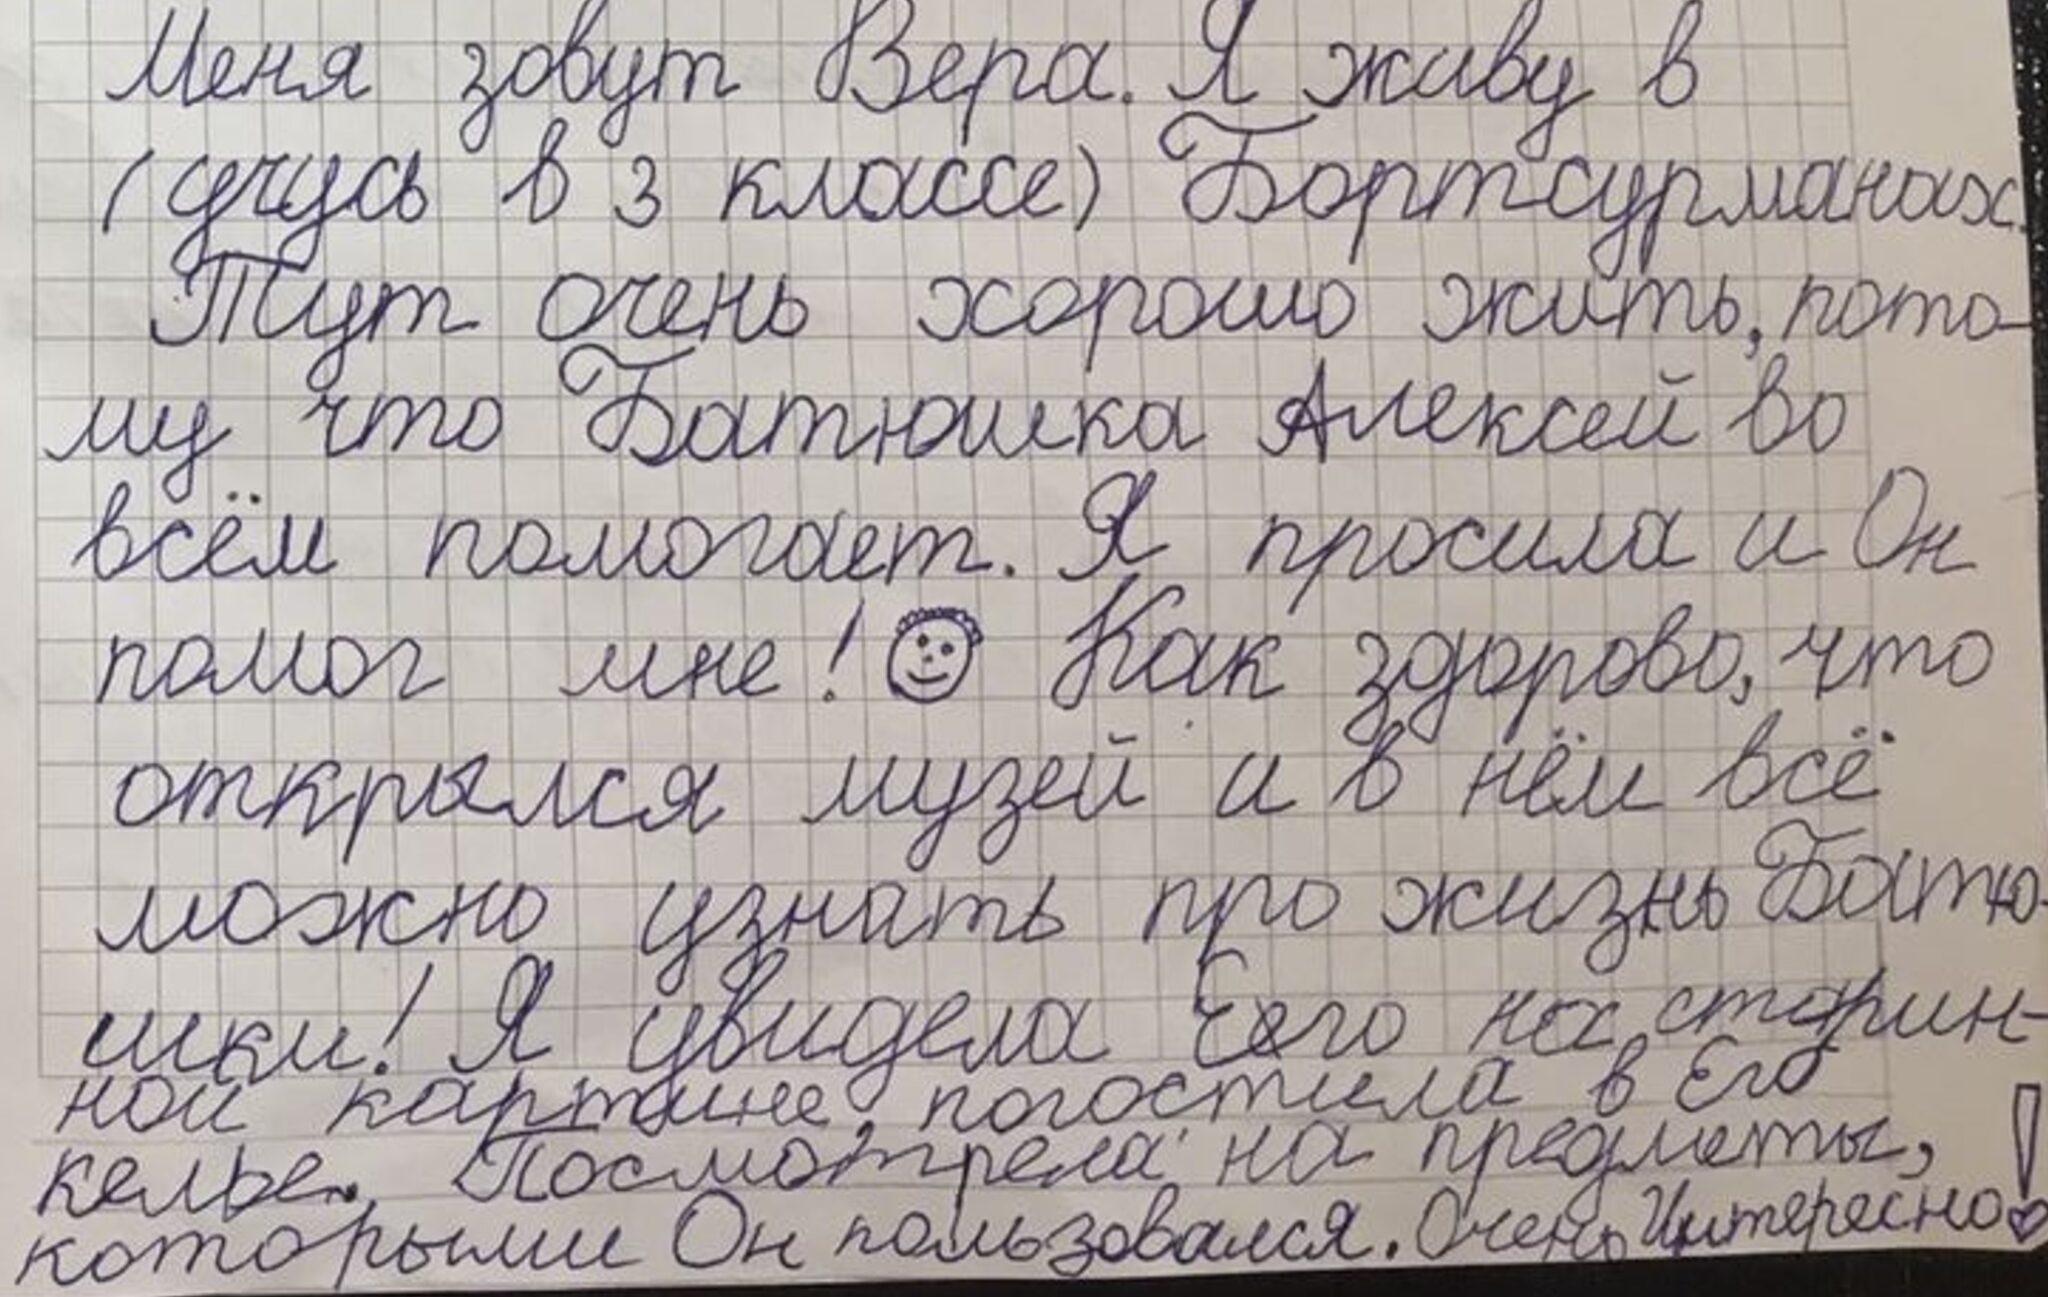 Меня зовут Вера. Я живу в
(учусь в 3 классе) Бортсурманах.
Тут очень хорошо жить, пото-
му что Батюшка Алексей во
всём помогает. Я просила и Он
помог мне! Как здорово, что
открылся музей и в нём всё
можно узнать про жизнь Батю-
шки! Я увидела Его на старин-
ной картине, погостила в Его
келье. Посмотрела на предметы,
которыми Он пользовался. Очень Интересно!